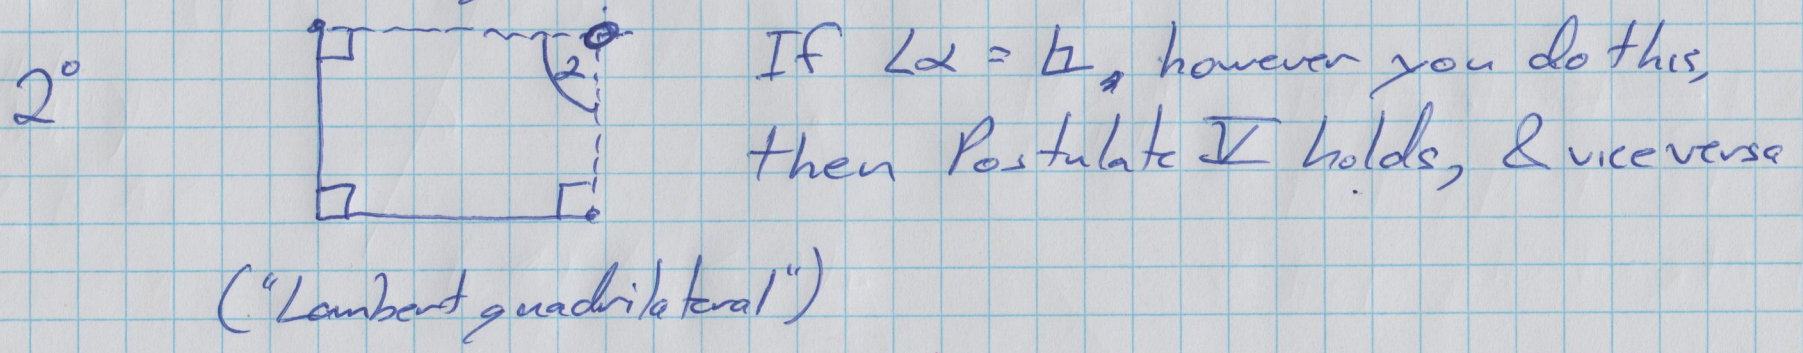 2°
α
If ∠α = ⊾, however you do this,
then Postulate V holds, & vice versa
("Lambert quadrilateral")